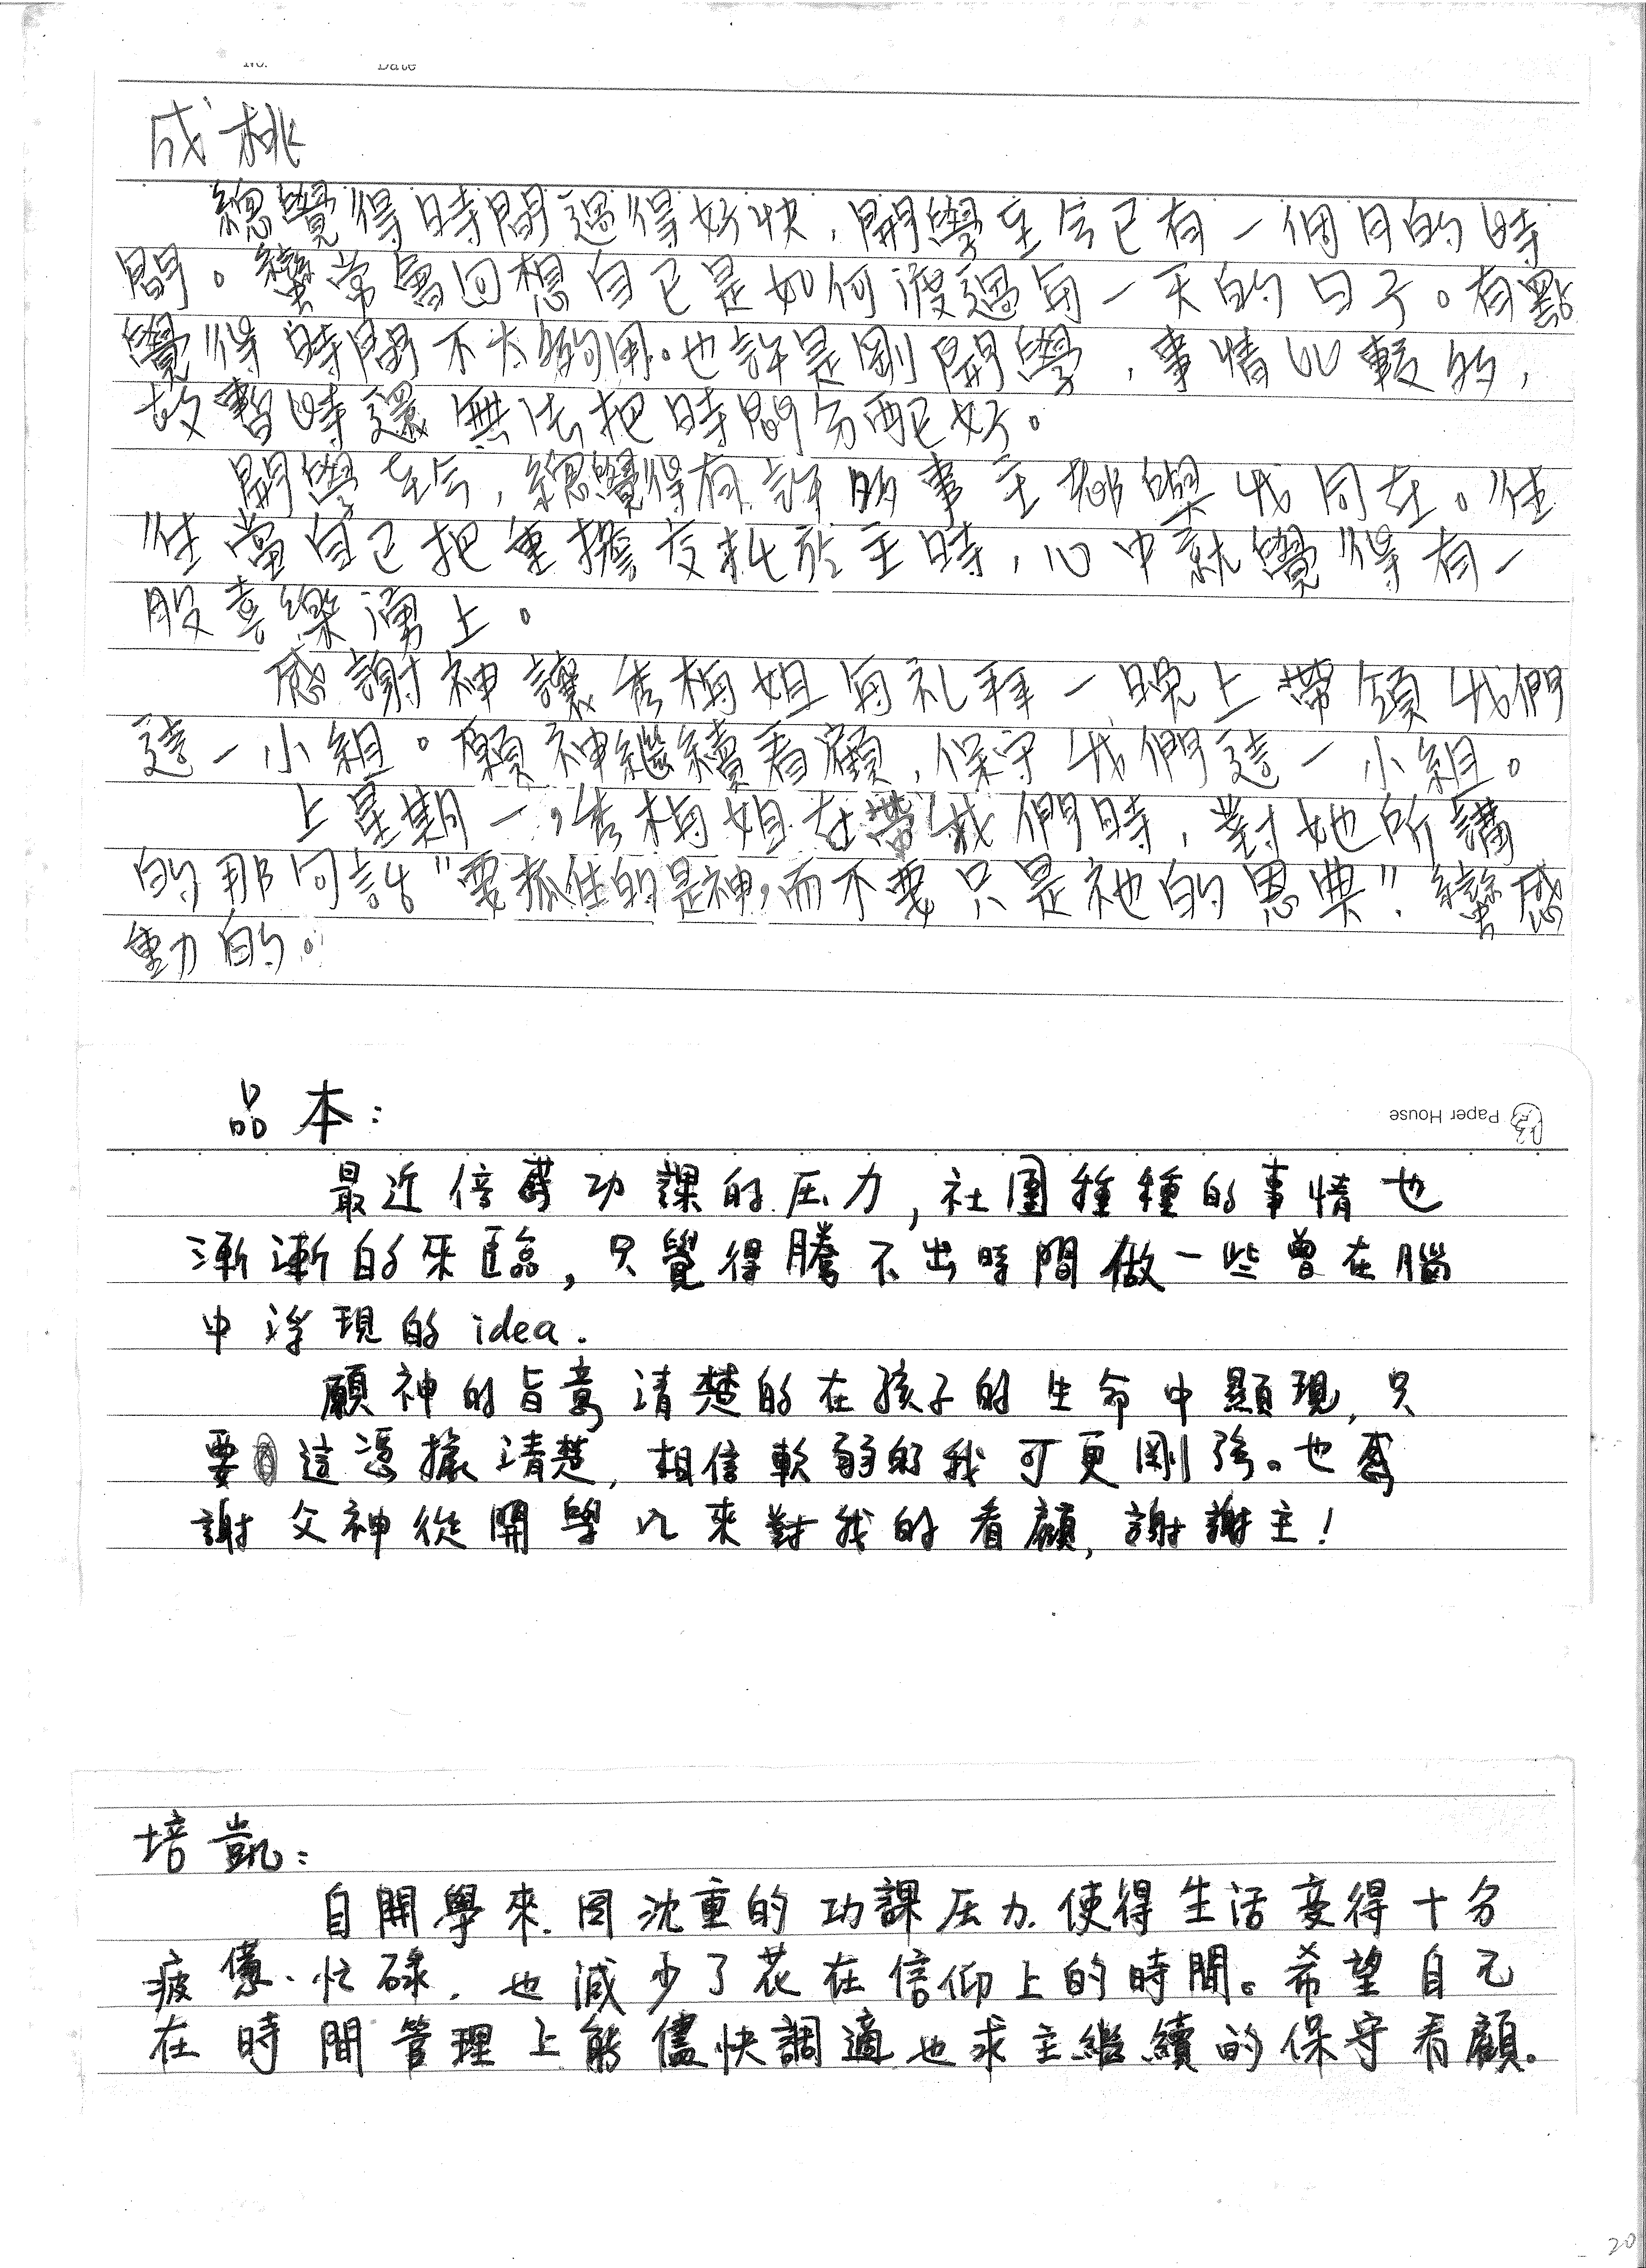 No. Date
成桃
總覺得時間過得好快，開學至今已有一個月的時
間。蠻常會回想自己是如何渡過每一天的日子。有點
覺得時間不太夠用。也許是剛開學，事情比較多，
故暫時還無法把時間分配好。
開學至今，總覺得有許多事主都與我同在。往
往當自己把重擔交托於主時，心中就覺得有一
股喜樂湧上。
感謝神讓秀梅姐每礼拜一晚上帶領我們
這一小組。願神繼續看顧，保守我們這一小組。
上星期一，秀梅姐在帶我們時，對她所講
的那句話"要抓住的是神，而不要只是祂的恩典"蠻感
動的。
品本：
Paper House
最近倍感功課的压力，社團種種的事情也
漸漸的來臨，只覺得騰不出時間做一些曾在腦
中浮現的idea.
願神的旨意清楚的在孩子的生命中顯現，只
要這憑據清楚，相信軟弱的我可更剛強。也感
謝父神從開學以來對我的看顧，謝謝主！
培凱：
自開學來.因沈重的功課压力.使得生活变得十分
疲憊、忙碌.也減少了花在信仰上的時間。希望自己
在時間管理上能儘快調適也求主繼續的保守看顧。
20